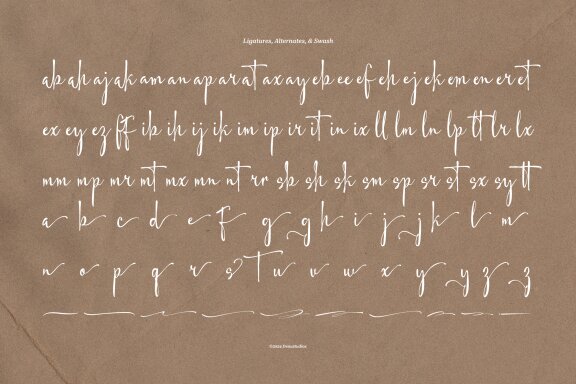 Ligatures, Alternates, & Swash
ab ah aj ak am an ap ar at ax ay eb ee ef eh ej ek em en er et
ex ey ez ff ib ih ij ik im ip ir it in ix ll lm ln lp lt lr lx
mm mp mr mt mx mn nt rr sb sh sk sm sp sr st sx sy tt
a b c d e f g g h i j j k l m
n o p q r s t u v w x y y z z